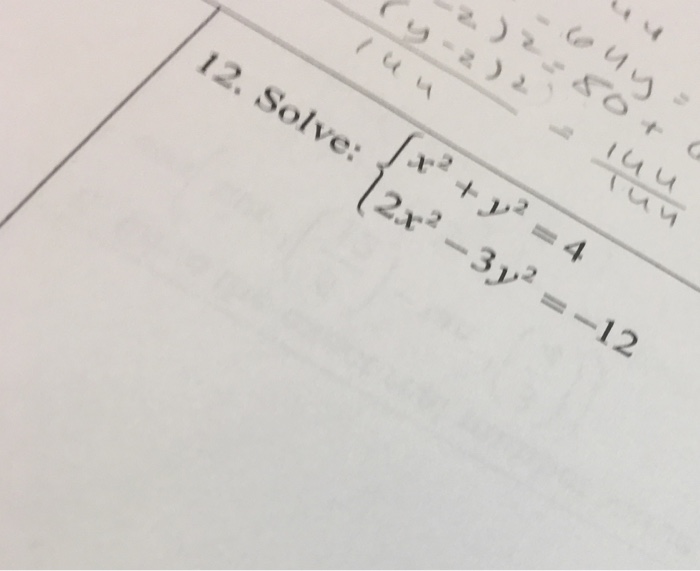 44
-2)2 = 64y =
(y-2)2 = 80 +
144 = 144
144
12. Solve: { x² + y² = 4
2x² - 3y² = -12